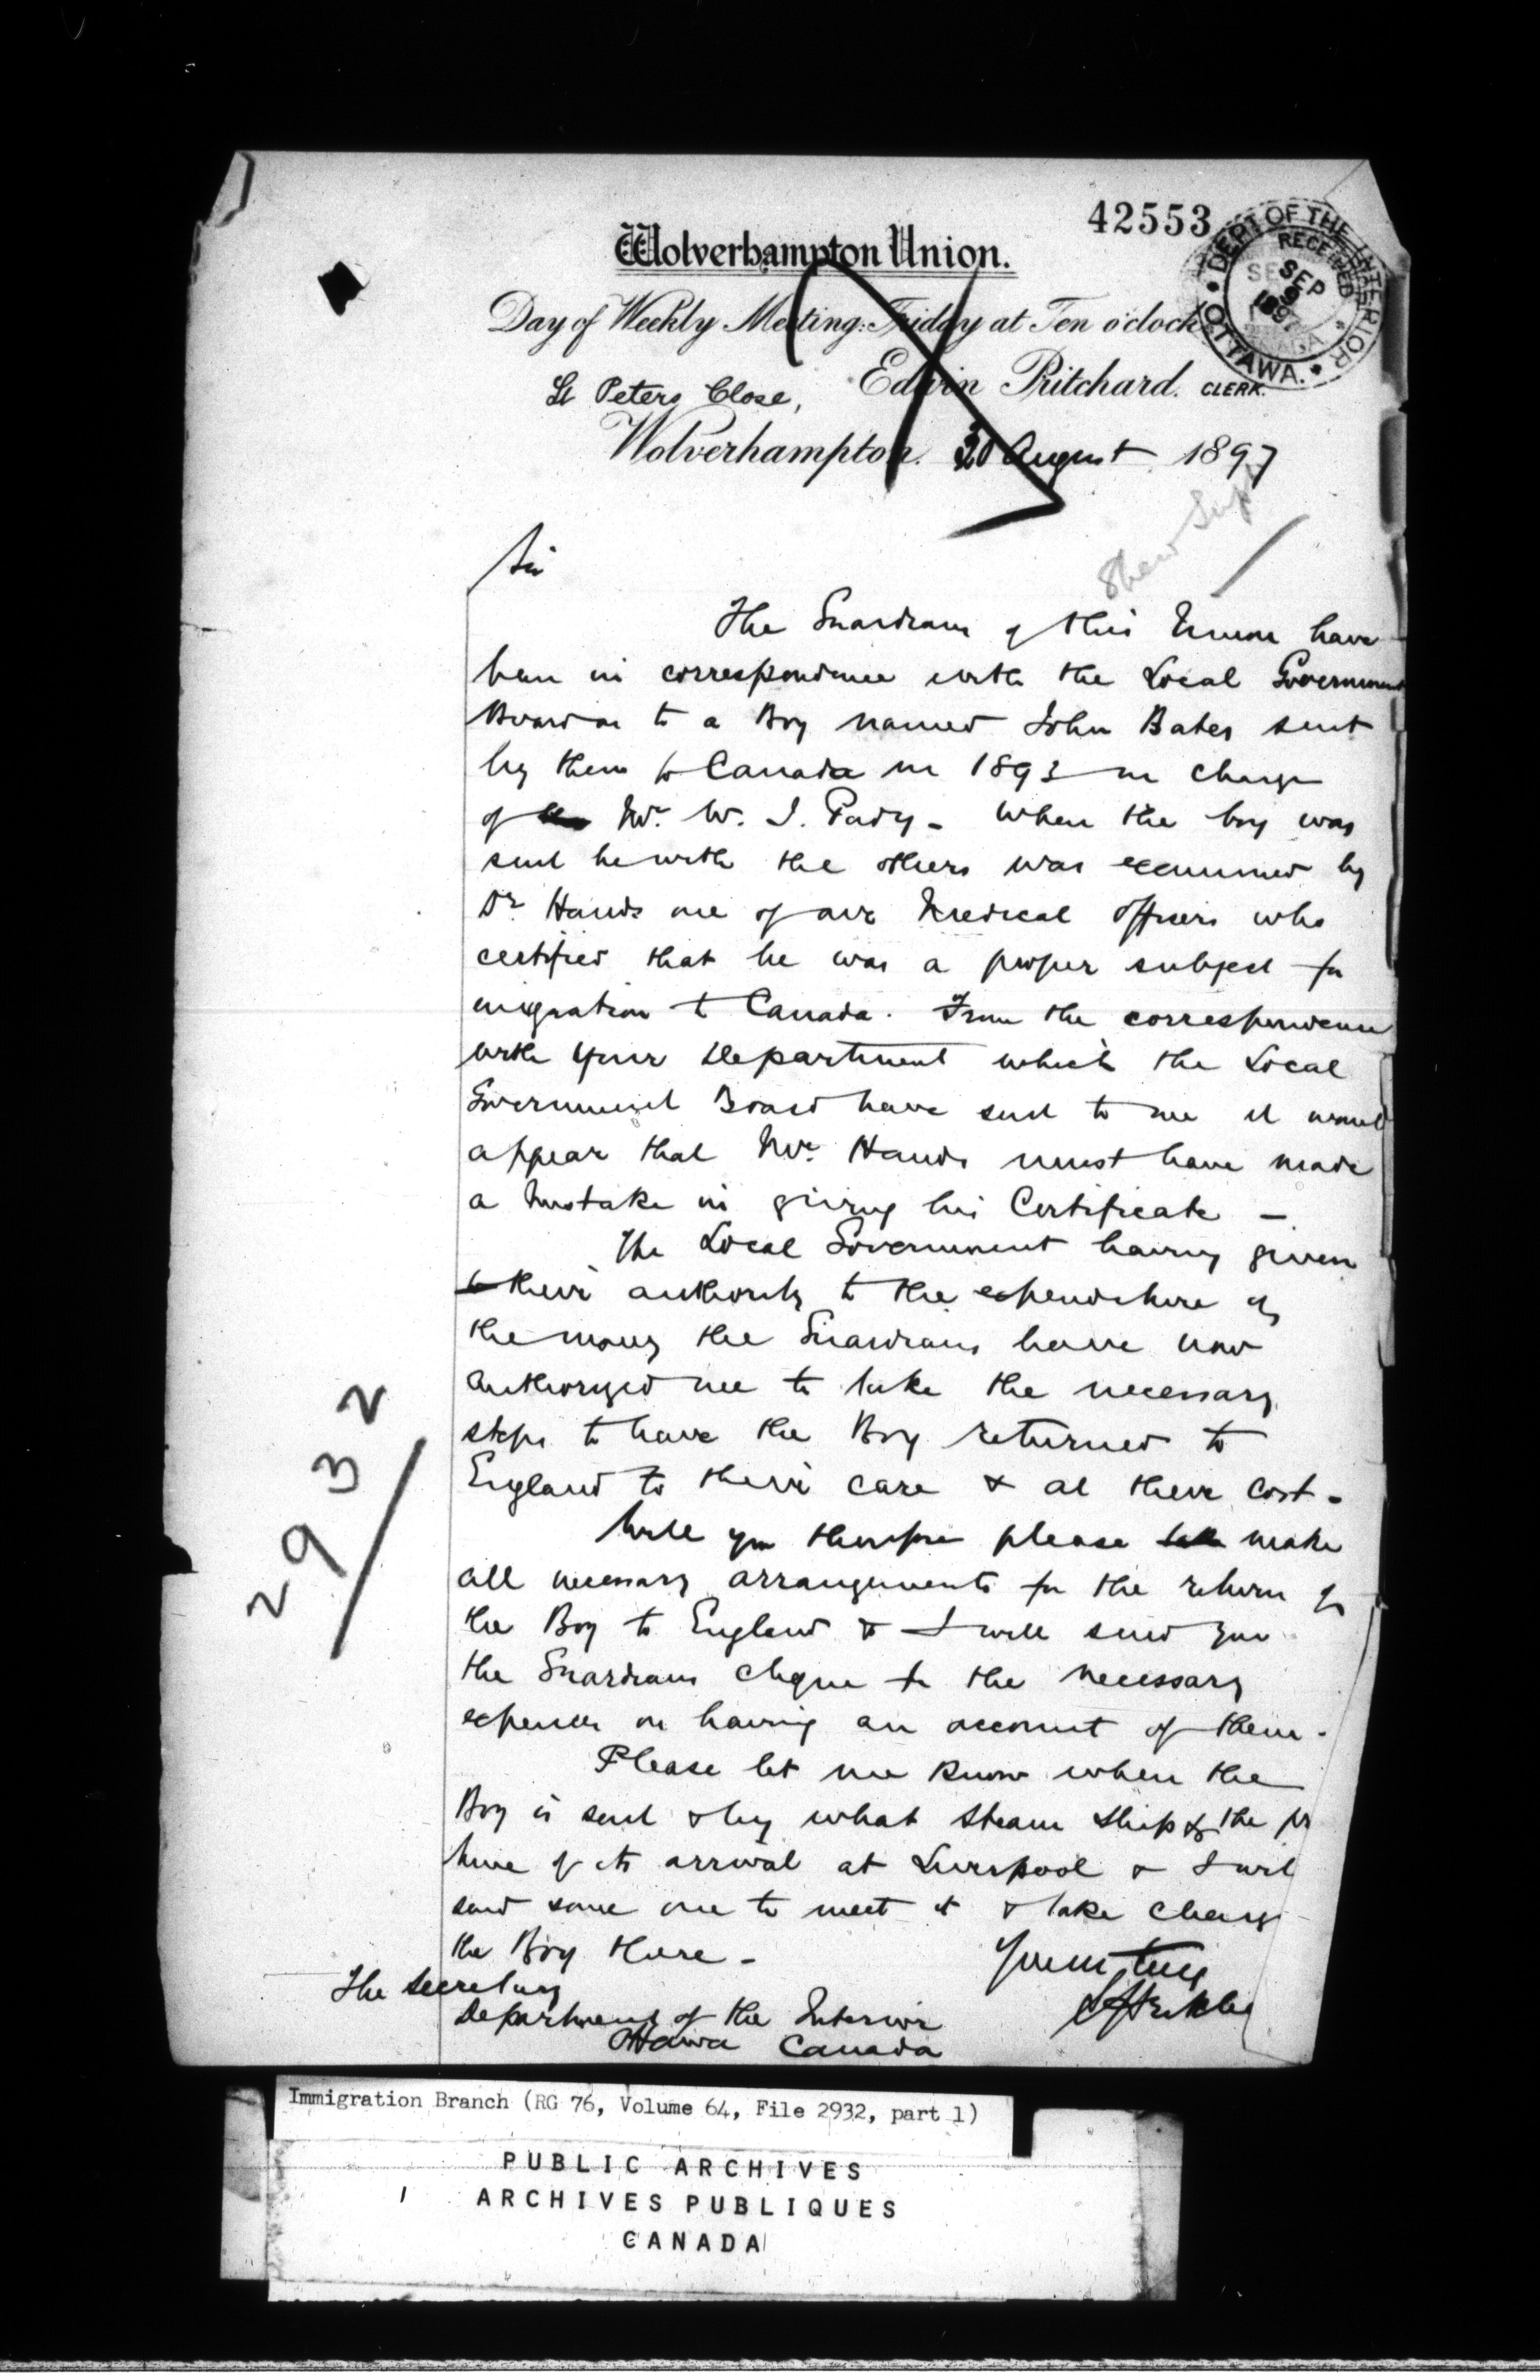 42553
Wolverhampton Union.
DEPT OF THE INTERIOR
RECEIVED
SEP
1897
OTTAWA.
Day of Weekly Meeting: Friday at Ten o'clock
St Peters Close, Edwin Pritchard. CLERK.
Wolverhampton. 30 August 1897
Sir
The Guardians of this Union have
been in correspondence with the Local Government
Board as to a Boy named John Bates sent
by them to Canada in 1893 in charge
of Mr. W. J. Pady - When the boy was
sent he with the others was examined by
Dr Hands one of our Medical Officers who
certified that he was a proper subject for
emigration to Canada. From the correspondence
with your Department which the Local
Government Board have sent to me it would
appear that Mr. Hands must have made
a mistake in giving his Certificate —
The Local Government having given
their authority to the expenditure of
the money the Guardians have now
authorized me to take the necessary
steps to have the Boy returned to
England to their care & at their cost -
Will you therefore please make
all necessary arrangements for the return of
the Boy to England & I will send you
the Guardians cheque for the necessary
expenses on having an account of them -
Please let me know when the
Boy is sent & by what Steam Ship & the
time of its arrival at Liverpool & I will
send some one to meet it & take charge
the Boy there -
Yours truly
The Secretary
Department of the Interior
Ottawa Canada
2932
Immigration Branch (RG 76, Volume 64, File 2932, part 1)
PUBLIC ARCHIVES
ARCHIVES PUBLIQUES
CANADA